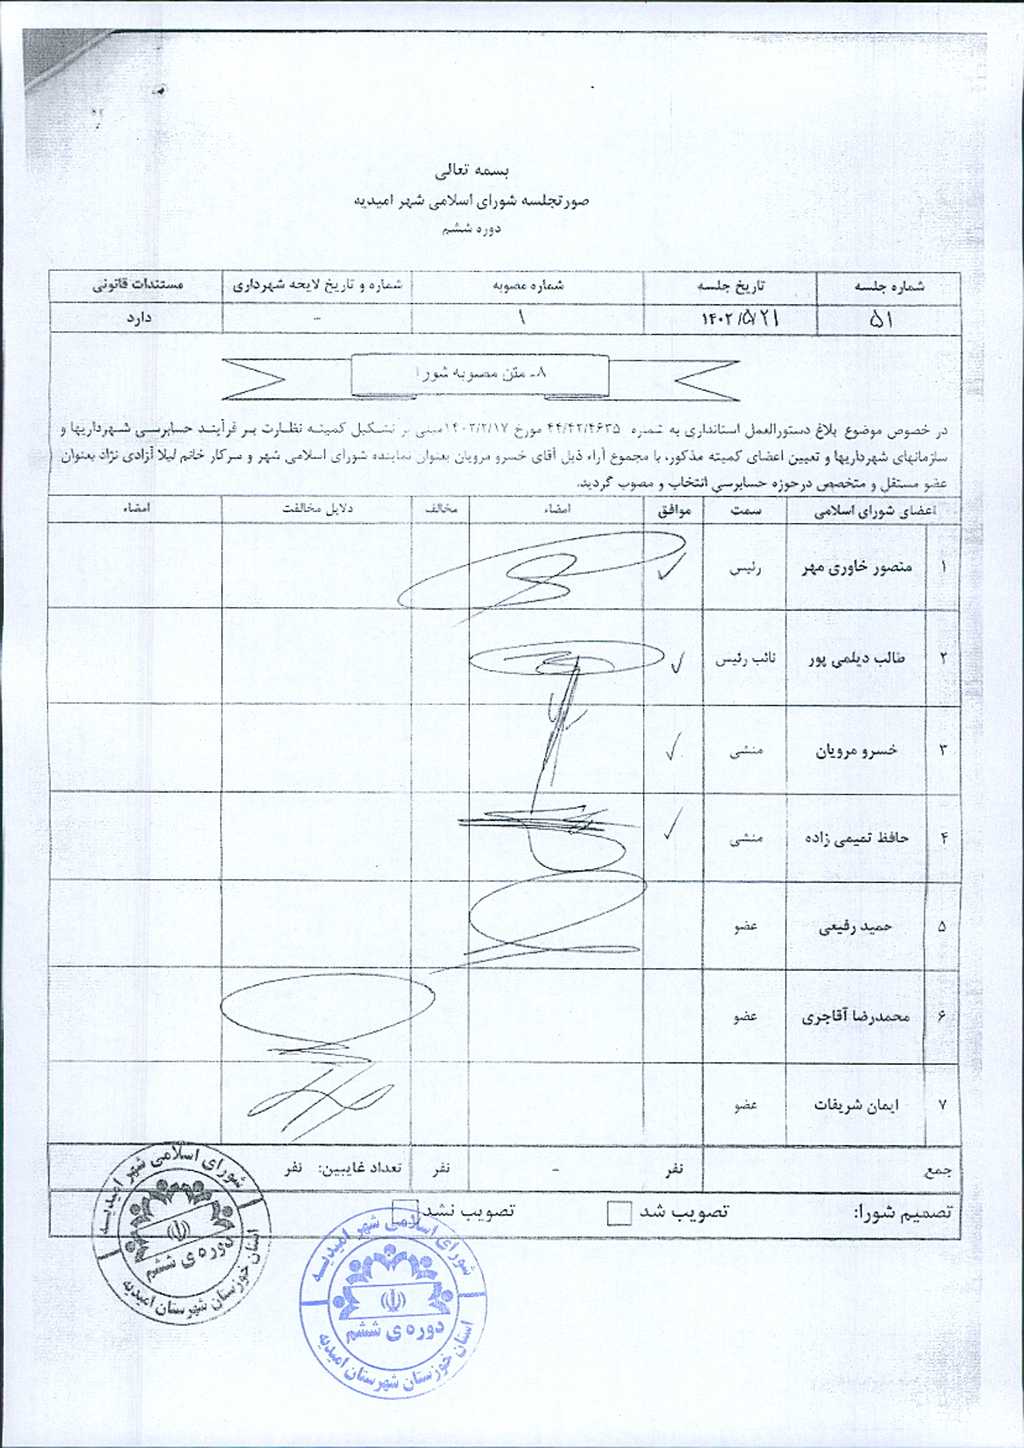 بسمه تعالی
صورتجلسه شورای اسلامی شهر امیدیه
دوره ششم
شماره جلسه تاریخ جلسه شماره مصوبه شماره و تاریخ لایحه شهرداری مستندات قانونی
۵۱ ۱۴۰۲/۵/۲۱ ۱ - دارد
۸- متن مصوبه شورا
در خصوص موضوع بلاغ دستورالعمل استانداری به شماره ۴۴/۴۲/۴۶۳۵ مورخ ۱۴۰۲/۲/۱۷ مبنی بر تشکیل کمیته نظارت بر فرآیند حسابرسی شهرداریها و
سازمانهای شهرداریها و تعیین اعضای کمیته مذکور، با مجموع آراء ذیل آقای خسرو مرویان بعنوان نماینده شورای اسلامی شهر و سرکار خانم لیلا آزادی نژاد بعنوان
عضو مستقل و متخصص درحوزه حسابرسی انتخاب و مصوب گردید.
اعضای شورای اسلامی سمت موافق امضاء مخالف دلایل مخالفت امضاء
۱ منصور خاوری مهر رئیس ✓
۲ طالب دیلمی پور نائب رئیس ✓
۳ خسرو مرویان منشی ✓
۴ حافظ تمیمی زاده منشی ✓
۵ حمید رفیعی عضو
۶ محمدرضا آقاجری عضو
۷ ایمان شریفات عضو
جمع نفر - نفر تعداد غایبین: نفر
تصمیم شورا: تصویب شد تصویب نشد
شورای اسلامی شهر امیدیه
دوره ی ششم
استان خوزستان شهرستان امیدیه
شورای اسلامی شهر امیدیه
دوره ی ششم
استان خوزستان شهرستان امیدیه